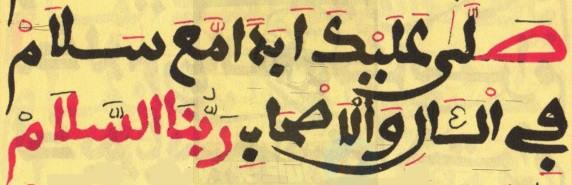 صَلَّى عَلَيْكَ أبَدًا مَّعَ سَلَامْ
فِي الْءَالِ وَالْأَصْحَابِ رَبُّنَا السَّلَامْ